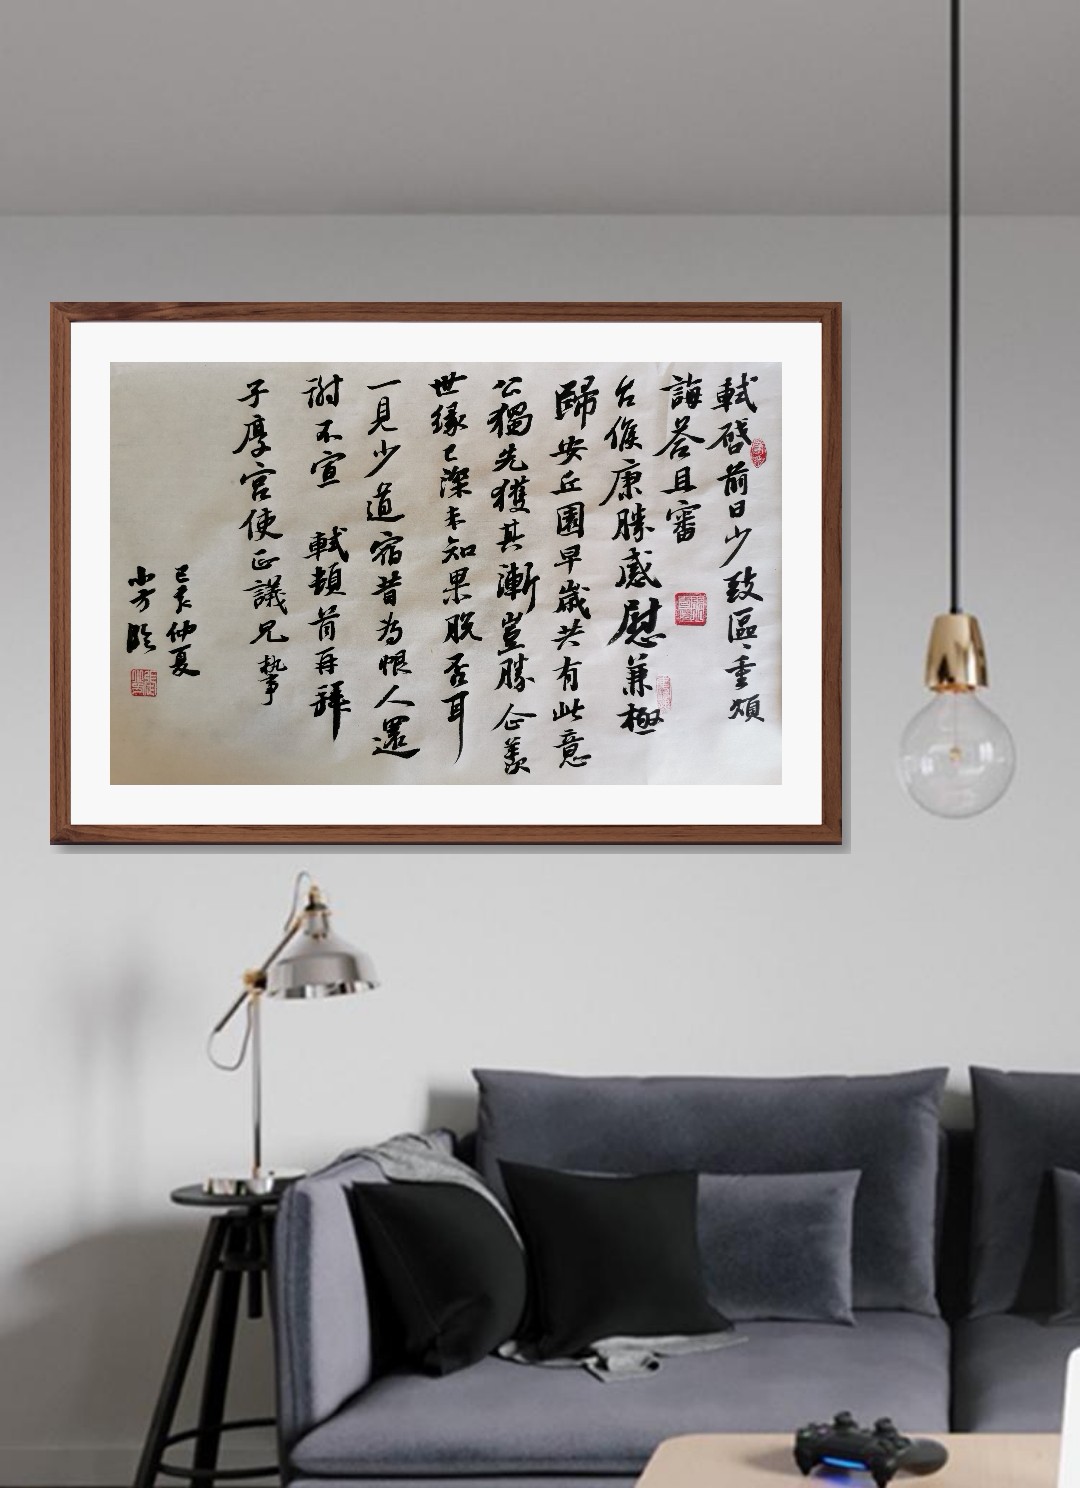 軾啓前日少致區區重煩
誨荅且審
台候康勝感慰兼極
歸安丘園早歲共有此意
公獨先獲其漸豈勝企羨
世緣已深未知果脫否耳
一見少道宿昔為恨人還
謝不宣　軾頓首再拜
子厚宮使正議兄執事
仲夏